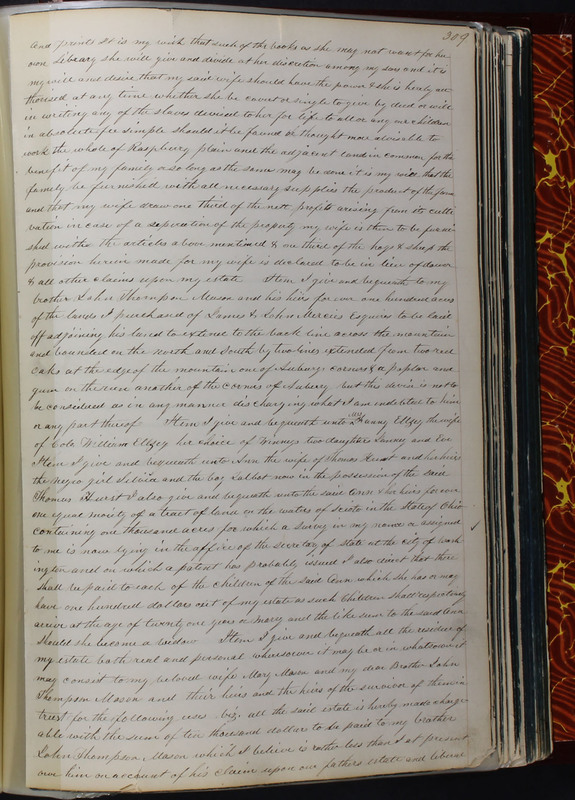 309
and prints It is my wish that such of the books as she may not want for her
own Library she will give and divide at her discretion among my sons and it is
my will and desire that my said wife should have the power & she is hereby au
thorised at any time whether she be covert or single to give by deed or will
in writing any of the slaves devised to her for life to all or any our children
in absolute fee simple should it be found or thought more advisable to
work the whole of Raspberry plain and the adjacent land in common for the
benefit of my family so long as the same may be done it is my will that the
family be furnished with all necessary supplies the product of the farm
and that my wife draw one third of the nett profits arising from its culti
vation in case of a seperation of the property my wife is then to be furni
shed with the articles above mentioned & one third of the hogs & sheep the
provision herein made for my wife is declared to be in lieu of dower
& all other claims upon my estate Item I give and bequeath to my
brother John Thompson Mason and his heirs for ever one hundred acres
of the lands I purchased of James & John Mercies Esquires to be laid
off adjoining his land to extend to the back line across the mountain
and bounded on the north and South by two lines extended from two red
oaks at the edge of the mountain one of corners & a poplar and
gum on the river another of the corners of but this devise is not to
be considered as in any manner discharging what I am indebted to him
or any part thereof Item I give and bequeath unto Mrs Fanny Ellzey the wife
of Colo. William Ellzey her choice of Winneys two daughters and Eve
Item I give and bequeath unto Ann the wife of Thomas Hurst and his heirs
the negro girl and the boy Talbot now in the possession of the said
Thomas Hurst I also give and bequeath unto the said Ann & her heirs for ever
one equal moiety of a tract of land on the waters of Scioto in the State of Ohio
containing one thousand acres for which a Survey in my name or assigned
to me is now lying in the office of the secretary of state at the city of Wash
ington and on which a patent has probably issued I also direct that there
shall be paid to each of the children of the said Ann which she has or may
have one hundred dollars out of my estate as such Children shall respectively
arrive at the age of twenty one years or marry and the like sum to the said Ann
should she become a widow Item I give and bequeath all the residue of
my estate both real and personal wheresoever it may be or in whatsoever it
may consist to my beloved wife Mary Mason and my dear Brother John
Thompson Mason and their heirs and the heirs of the survivor of them in
trust for the following uses viz. all the said estate is hereby made charge
able with the sum of ten thousand dollars to be paid to my brother
John Thompson Mason which I believe is rather less than I at present
owe him on account of his claim upon our fathers estate and liberal